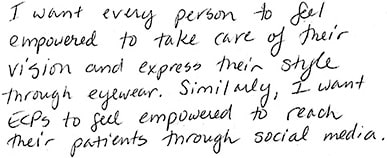 I want every person to feel
empowered to take care of their
vision and express their style
through eyewear. Similarly, I want
ECPs to feel empowered to reach
their patients through social media.